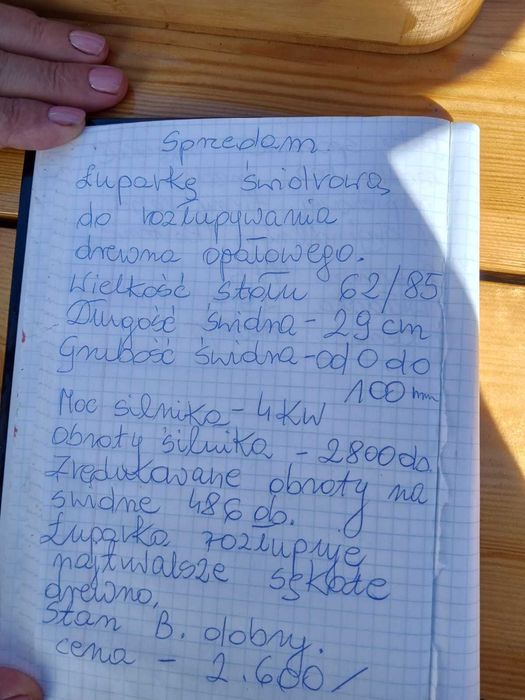 Sprzedam
Łuparkę świdrową
do rozłupywania
drewna opałowego.
Wielkość stołu 62/85
Długość świdra - 29 cm
Grubość świdra - od 0 do
100 mm
Moc silnika - 4 KW
Obroty silnika - 2800 ob.
Zredukowane obroty na
świdrze 486 ob.
Łuparka rozłupuje
najtwalsze sękate
drewno.
Stan B. dobry.
cena - 2.600/